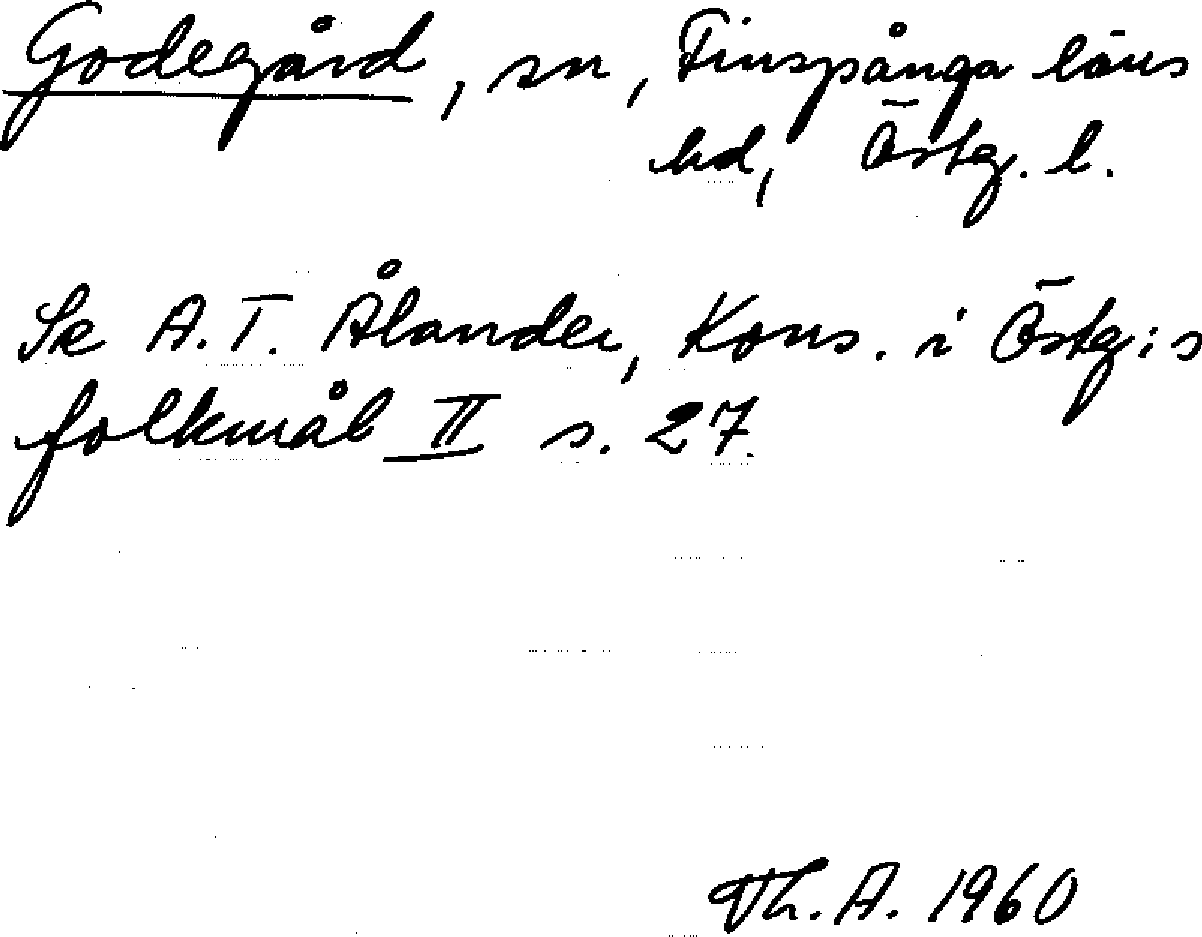 Godegård, sn, Finspånga läns
hd, Östg. l.
Se A. T. Ålander, Kons. i Östg:s
folkmål II s. 27.
Th. A. 1960